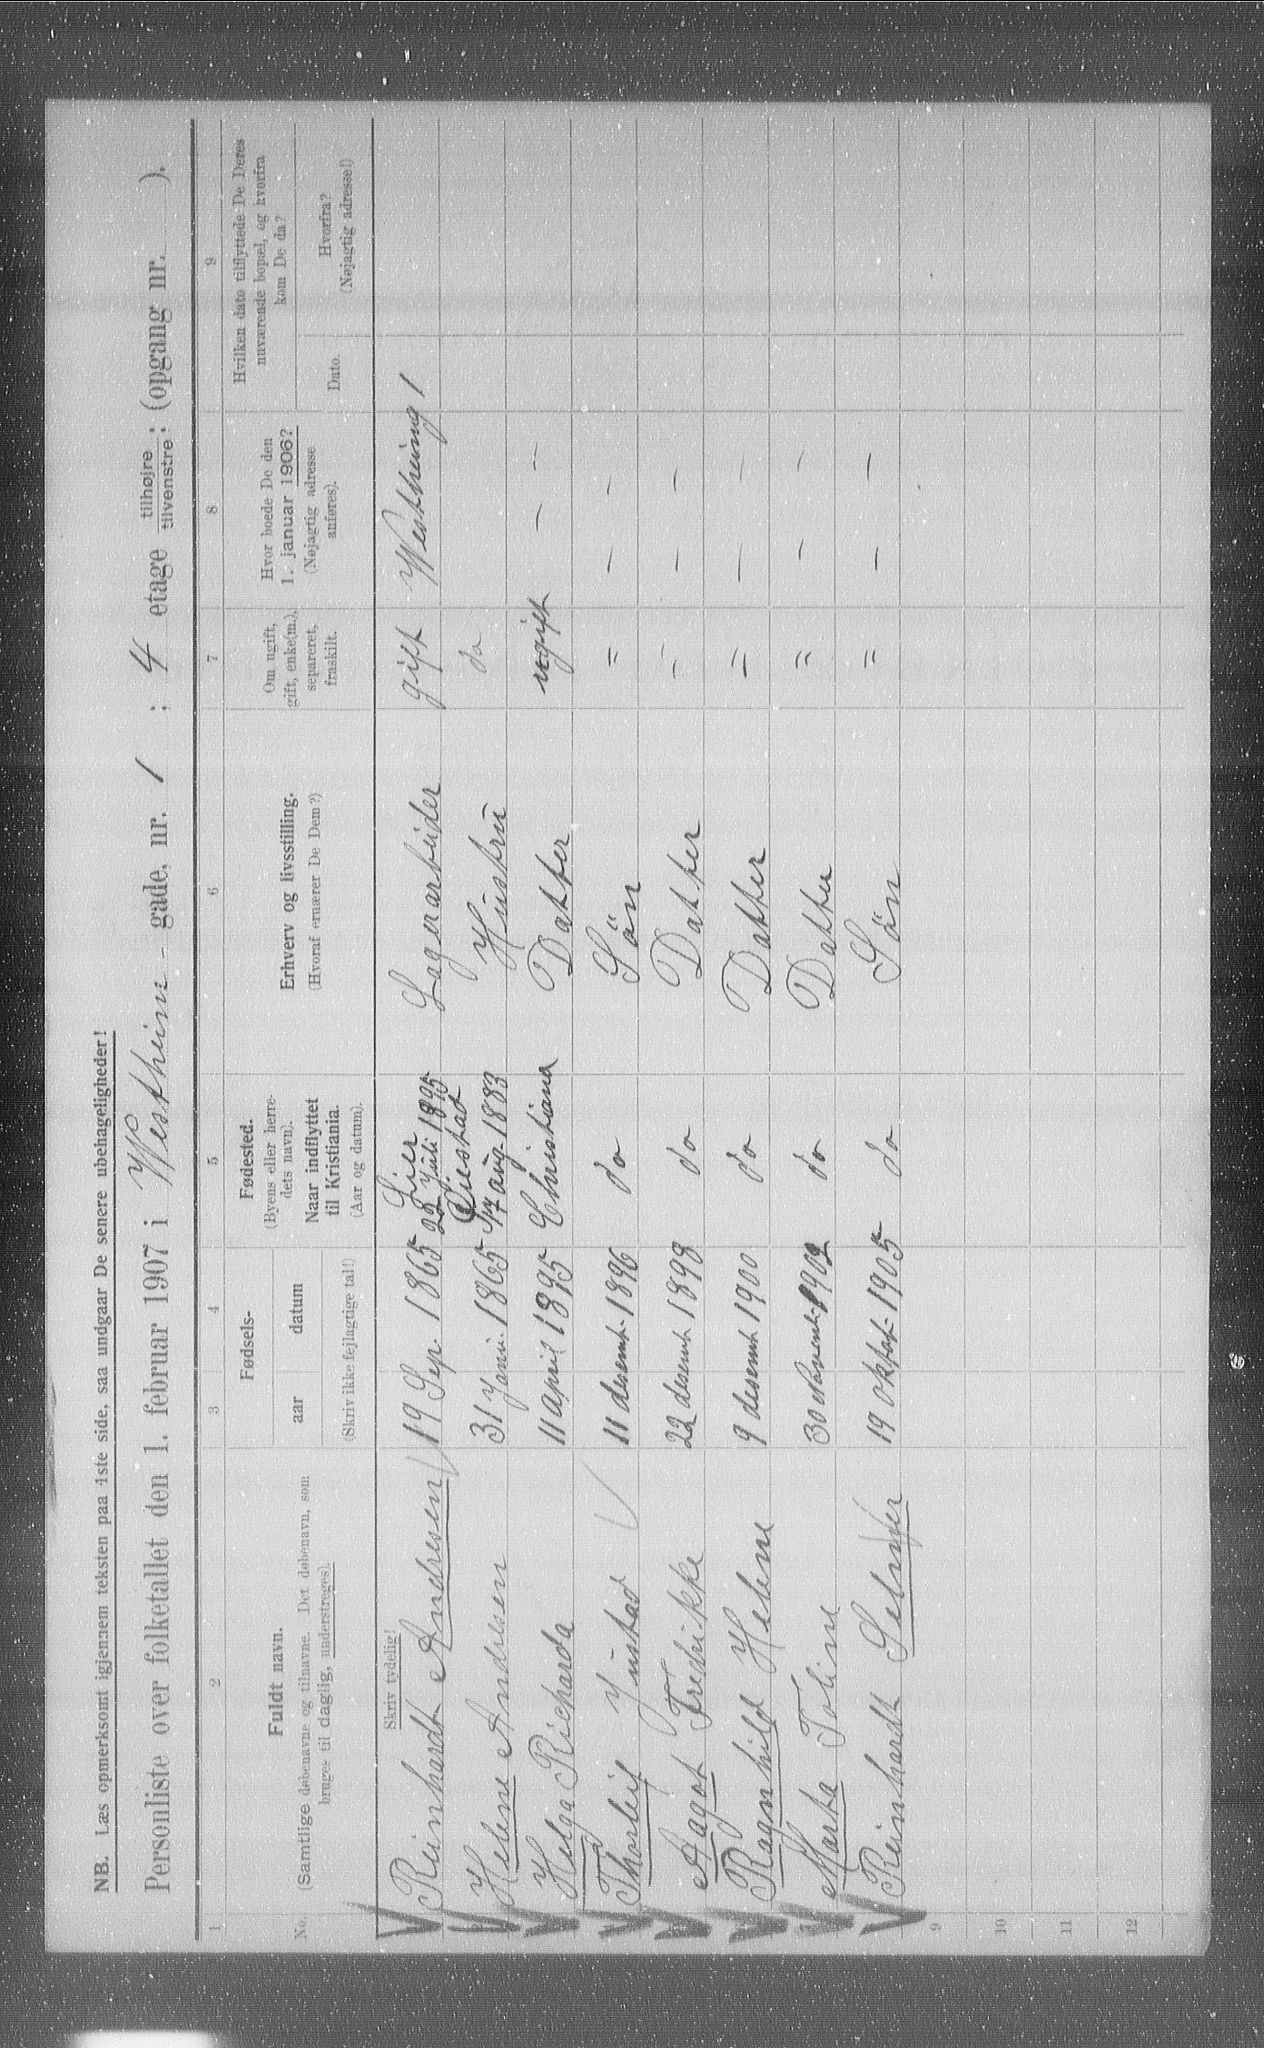 NB. Læs opmerksomt igjennem teksten paa 1ste side, saa undgaar De senere ubehageligheder!
Personliste over folketallet den 1. februar 1907 i Westheims gade, nr. 1 ; 4 etage tilhøjre/tilvenstre: (opgang nr. ).
1 2 3 4 5 6 7 8 9
No. Fuldt navn. (Samtlige døbenavne og tilnavne. Det døbenavn, som bruges til daglig, understreges). Fødsels- aar datum (Skriv ikke fejlagtige tal!) Fødested. (Byens eller herredets navn). Naar indflyttet til Kristiania. (Aar og datum). Erhverv og livsstilling. (Hvoraf ernærer De Dem?) Om ugift, gift, enke(m.), separeret, fraskilt. Hvor boede De den 1. januar 1906? (Nøjagtig adresse anføres). Hvilken dato tilflyttede De Deres nuværende bopæl, og hvorfra kom De da? Dato. Hvorfra? (Nøjagtig adresse!)
Skriv tydelig!
Reinhardt Andresen 19 Sep. 1865 Lier 22 Juli 1895 Lagerarbeider gift Westheimg 1
Helene Andresen 31 Janu. 1865 17 aug. 1883 Hustru do
Helga Richarda 11 april 1895 Christiana Datter ugift — —
Thorleif Justad 11 desemb. 1896 do Sön = — —
Aagot Fredrikke 22 desemb 1898 do Datter = — —
Ragnhild Helene 9 desemb 1900 do Datter = — —
Marta Toline 30 Novemb. 1902 do Datter = — —
Reinhardt 19 oktob. 1905 do Sön = — —
9
10
11
12